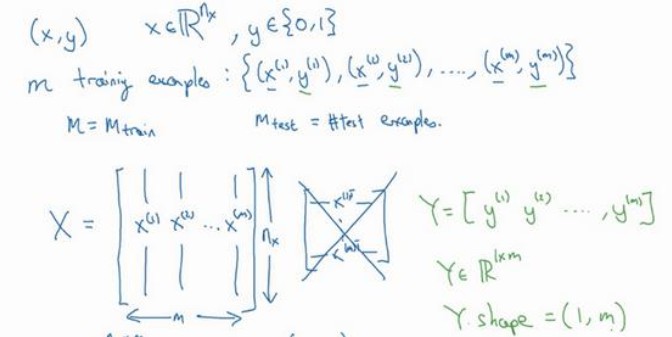 (x,y) x∈ℝ^{n_x}, y∈{0,1}
m trainiy examples : {(x^{(1)}, y^{(1)}), (x^{(2)}, y^{(2)}), ...., (x^{(m)}, y^{(m)})}
M = M_{train} M_{test} = #test examples.
X = [ x^{(1)} x^{(2)} ... x^{(m)} ] n_x
m
x^{(1)T}
x^{(m)T}
Y = [ y^{(1)} y^{(2)} ...., y^{(m)} ]
Y ∈ ℝ^{1×m}
Y.shape = (1, m)